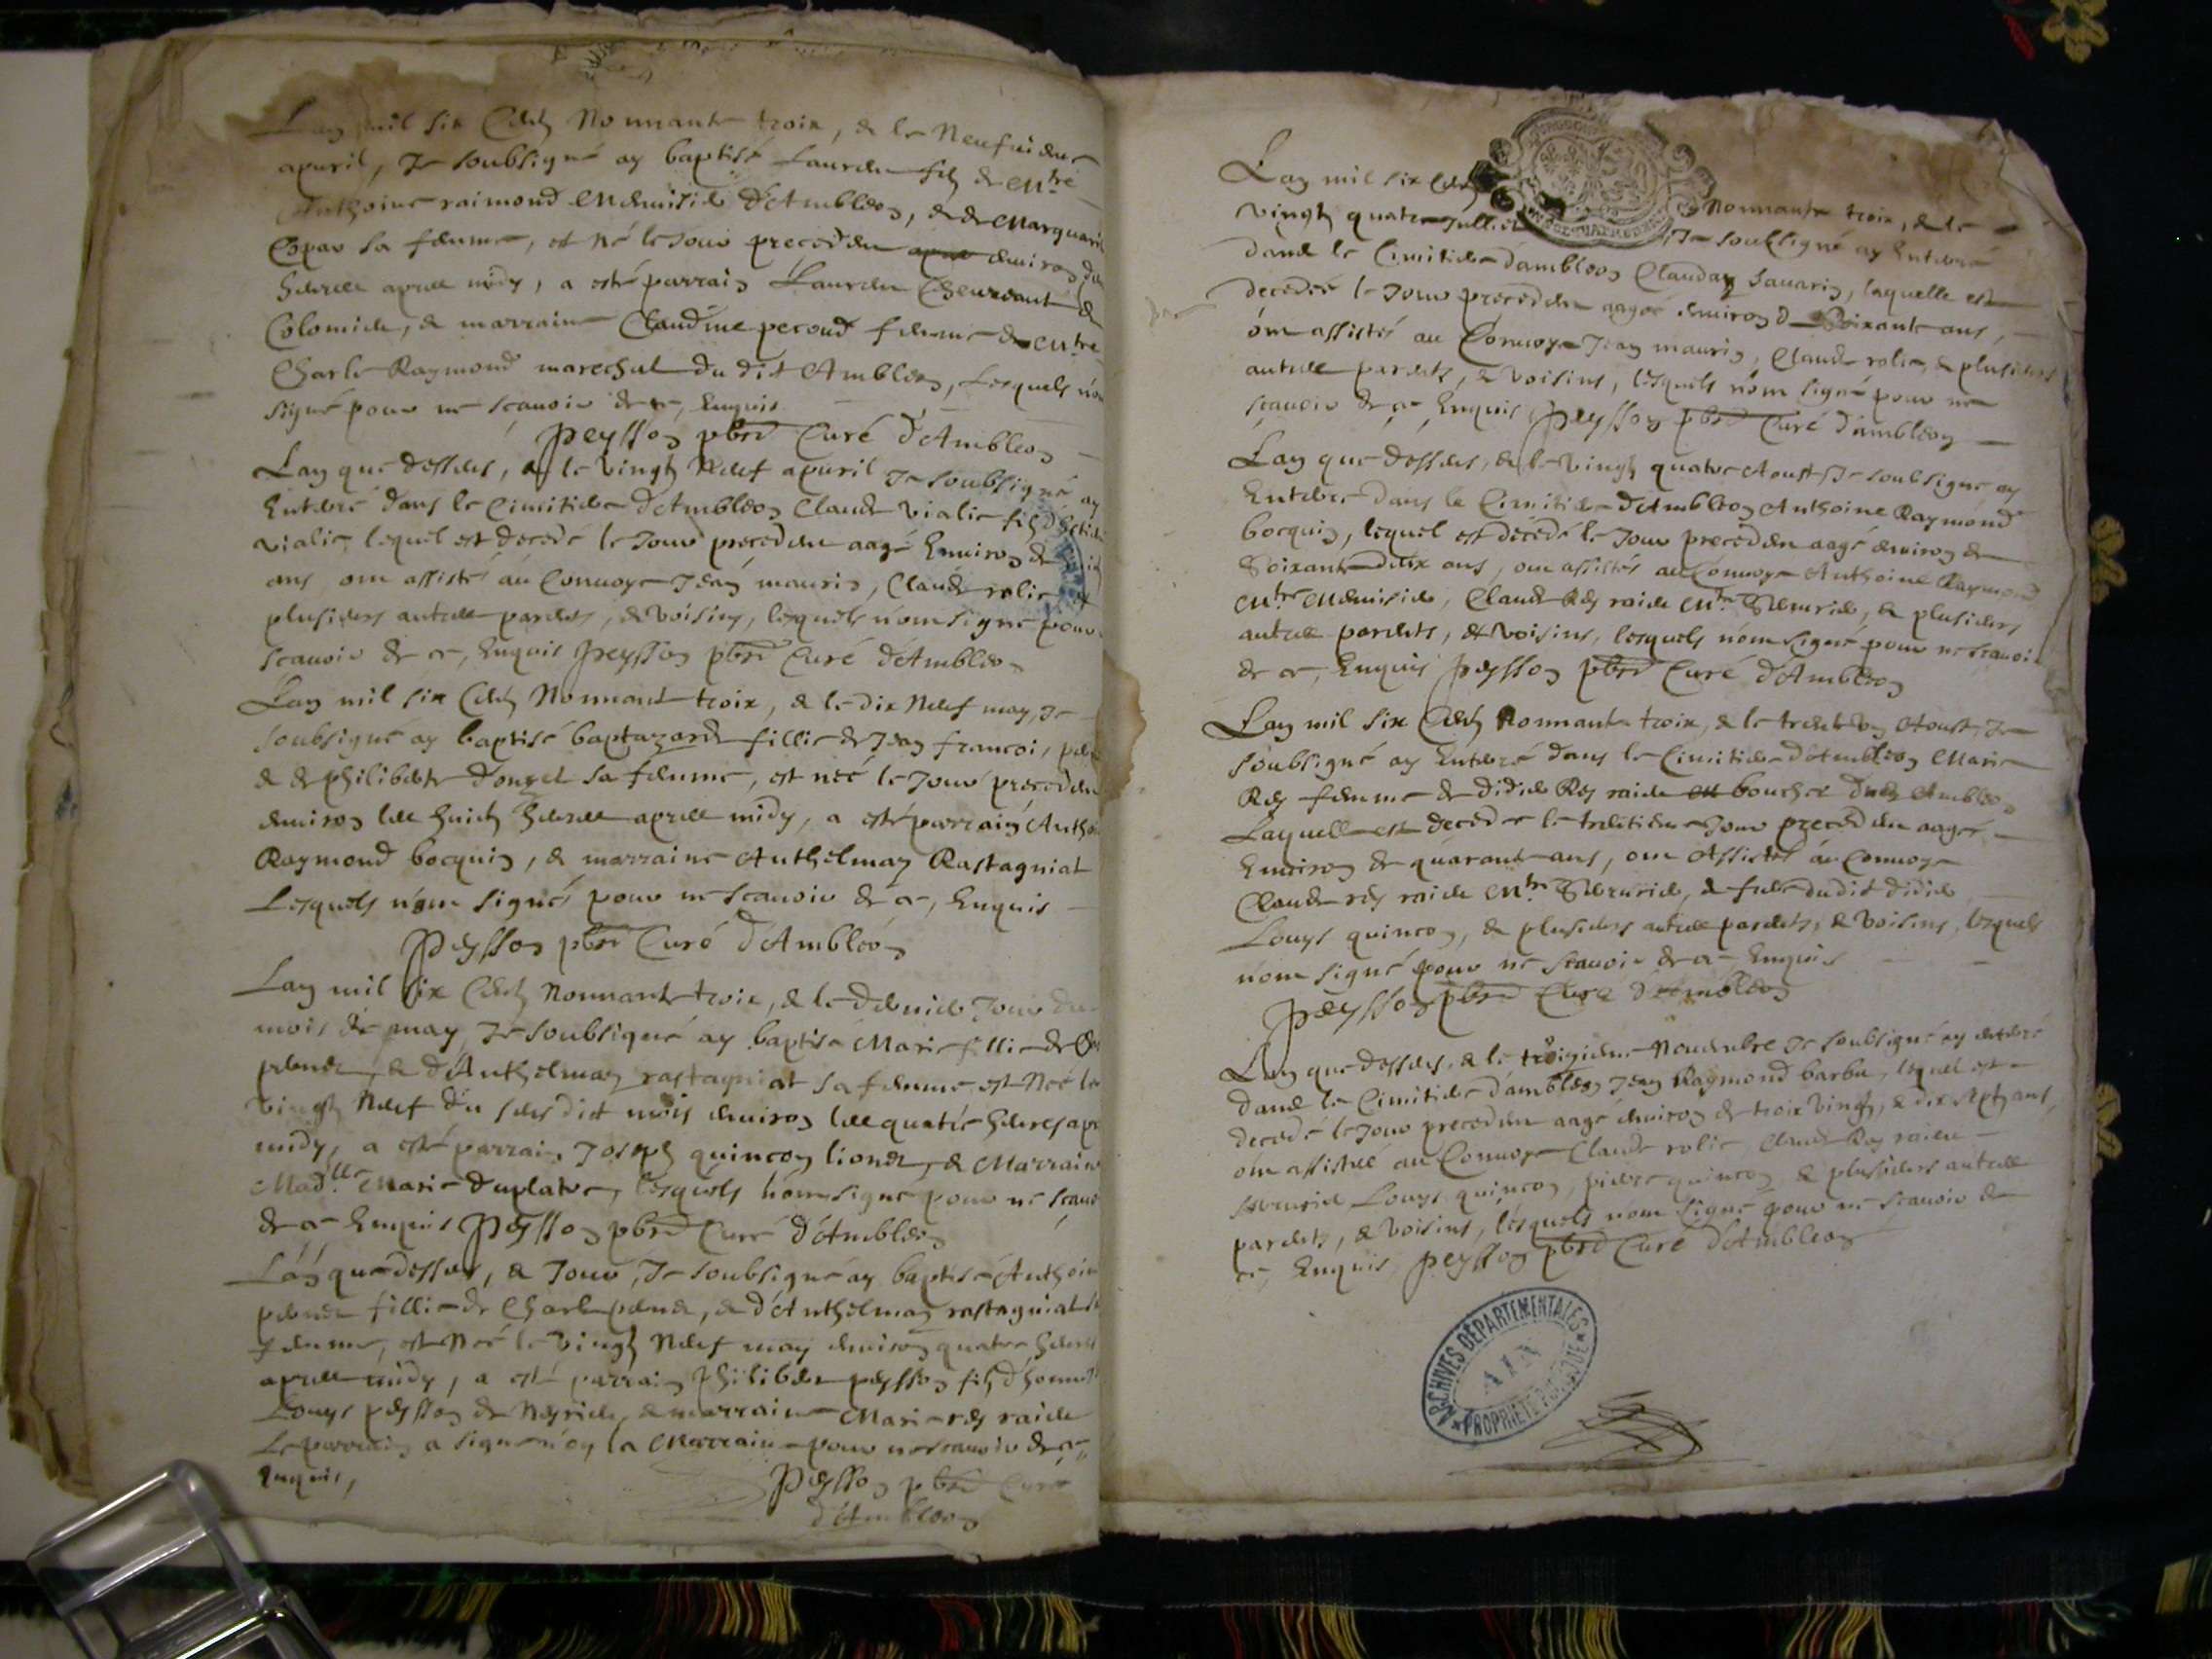 Lan mil six Cents Nonnante troix, & le Neufuieme
apuril, Je soubsigné ay baptisé Laurent fils de Mtre
Anthoine raimond Menuisier d'Ambleon, & de Marguerit
Copar sa femme, est né le Jour precedent enuiron
heures apres midy, a esté parrain Laurent de
Colomieu, & marraine Claudine pecoud femme de Mtre
Charle Raymond marechal du dit Ambleon, Lesquels nont
signé pour ne scauoir de ce, Enquis
peysson pbre Curé d'Ambleon
Lan que dessus, & le vingt Neuf apuril Je soubsigné ay
Enterré dans le Cimitiere d'Ambleon Claude vialie fils
vialie, lequel est decedé le Jour precedent aagé Enuiron de
ans ont assisté au Conuoye Jean maurin, Claude rolie &
plusieurs autres parents, & voisins, lesquels n'ont signé pour
scauoir de ce, Enquis peysson pbre Curé d'Ambleon
Lan mil six Cents Nonnante troix, & le dix Neuf may, Je
soubsigné ay baptisé baptazarde fillie de Jean francoi,
& de philiberte donzel sa femme, est neé le Jour precedent
enuiron les huict heures apres midy, a esté parrain Anthoi
Raymond bocquin, & marraine Anthelmaz Rastagniat
Lesquels n'ont signés pour ne scauoir de ce, Enquis
Peysson pbre Curé d'Ambléon
Lan mil six Cents Nonnante troix, & le dernier Jour du
mois de may Je soubsigné ay baptisé Marie fillie de
& d'Anthelmaz rastagniat sa femme, est Neé le
vingt Neuf du susdict mois enuiron les quatre heures apr
midy, a esté parrain Joseph quincon & Marraine
Madlle Marie Duplatre, lesquels n'ont signé pour ne scauo
de ce Enquis Peysson pbre Curé d'Ambleon
Lan que dessus, & Jour, Je soubsigné ay baptisé Anthoi
fillie de Charle & d'Anthelmaz rastagniat sa
femme, est Neé le vingt Neuf may enuiron quatre heures
apres midy, a esté parrain philibert peysson fils d'honnet
Louys peysson de & marraine Marie rey raide
Le parrain a signé n'on la Marraine pour ne scauoir de ce
Enquis,
Peysson pbre Curé
d'Ambleon
Lan mil six Cents Nonnante troix, & le
vingt quatre Jullié Je soubsigné ay Enterré
dans le Cimitiere d'ambleon Claudaz sauarin, laquelle est
decedeé le Jour precedent aageé enuiron de Soixante ans,
ont assistés au Conuoye Jean maurin, Claude rolie, & plusieurs
autres parents, & voisins, lesquels n'ont signé pour ne
scauoir de ce, Enquis, peysson pbre Curé d'ambleon
Lan que dessus, & le vingt quatre Aoust Je soubsigné ay
Enterré dans le Cimitiere d'Ambleon Anthoine Raymond
bocquin, lequel est décédé le Jour precedent aagé enuiron de
Soixante dix ans, ont assistés au Conuoye Anthoine Raymond
Mtre Menuisier, Claude Rey raide Mtre Serrurier, & plusieurs
autres parents, & voisins, lesquels n'ont signé pour ne scauoir
de ce, Enquis peysson pbre Curé d'Ambleon
Lan mil six Cents Nonnante troix, & le trente vn Aoust, Je
soubsigné ay Enterré dans le Cimitiere d'Ambleon Marie
Rey femme de didier Rey raide boucher d'Ambleon
Laquelle est decedeé le trentieme Jour precedent aageé
Enuiron de quarante ans, ont Assistés au Conuoye
Claude rey raide Mtre Serrurier, & frere du dit didier
Louys quincon, & plusieurs autres parents, & voisins, lesquels
n'ont signé pour ne scauoir de ce Enquis
Peysson pbre Curé d'Ambleon
Lan que dessus, & le troixieme Nouembre Je soubsigné ay enterré
dans le Cimitiere d'ambleon Jean Raymond barbu, lequel est
decedé le Jour precedent aagé enuiron de troix vingt, & dix sept ans,
ont assistés au Conuoye Claude rolie, Claude Rey raide
serrurier Louys quincon, pierre quincon, & plusieurs autres
parents, & voisins, lesquels n'ont signé pour ne scauoir de
ce, Enquis, peysson pbre Curé d'Ambleon
ARCHIVES DÉPARTEMENTALES
AIN
PROPRIÉTÉ PUBLIQUE